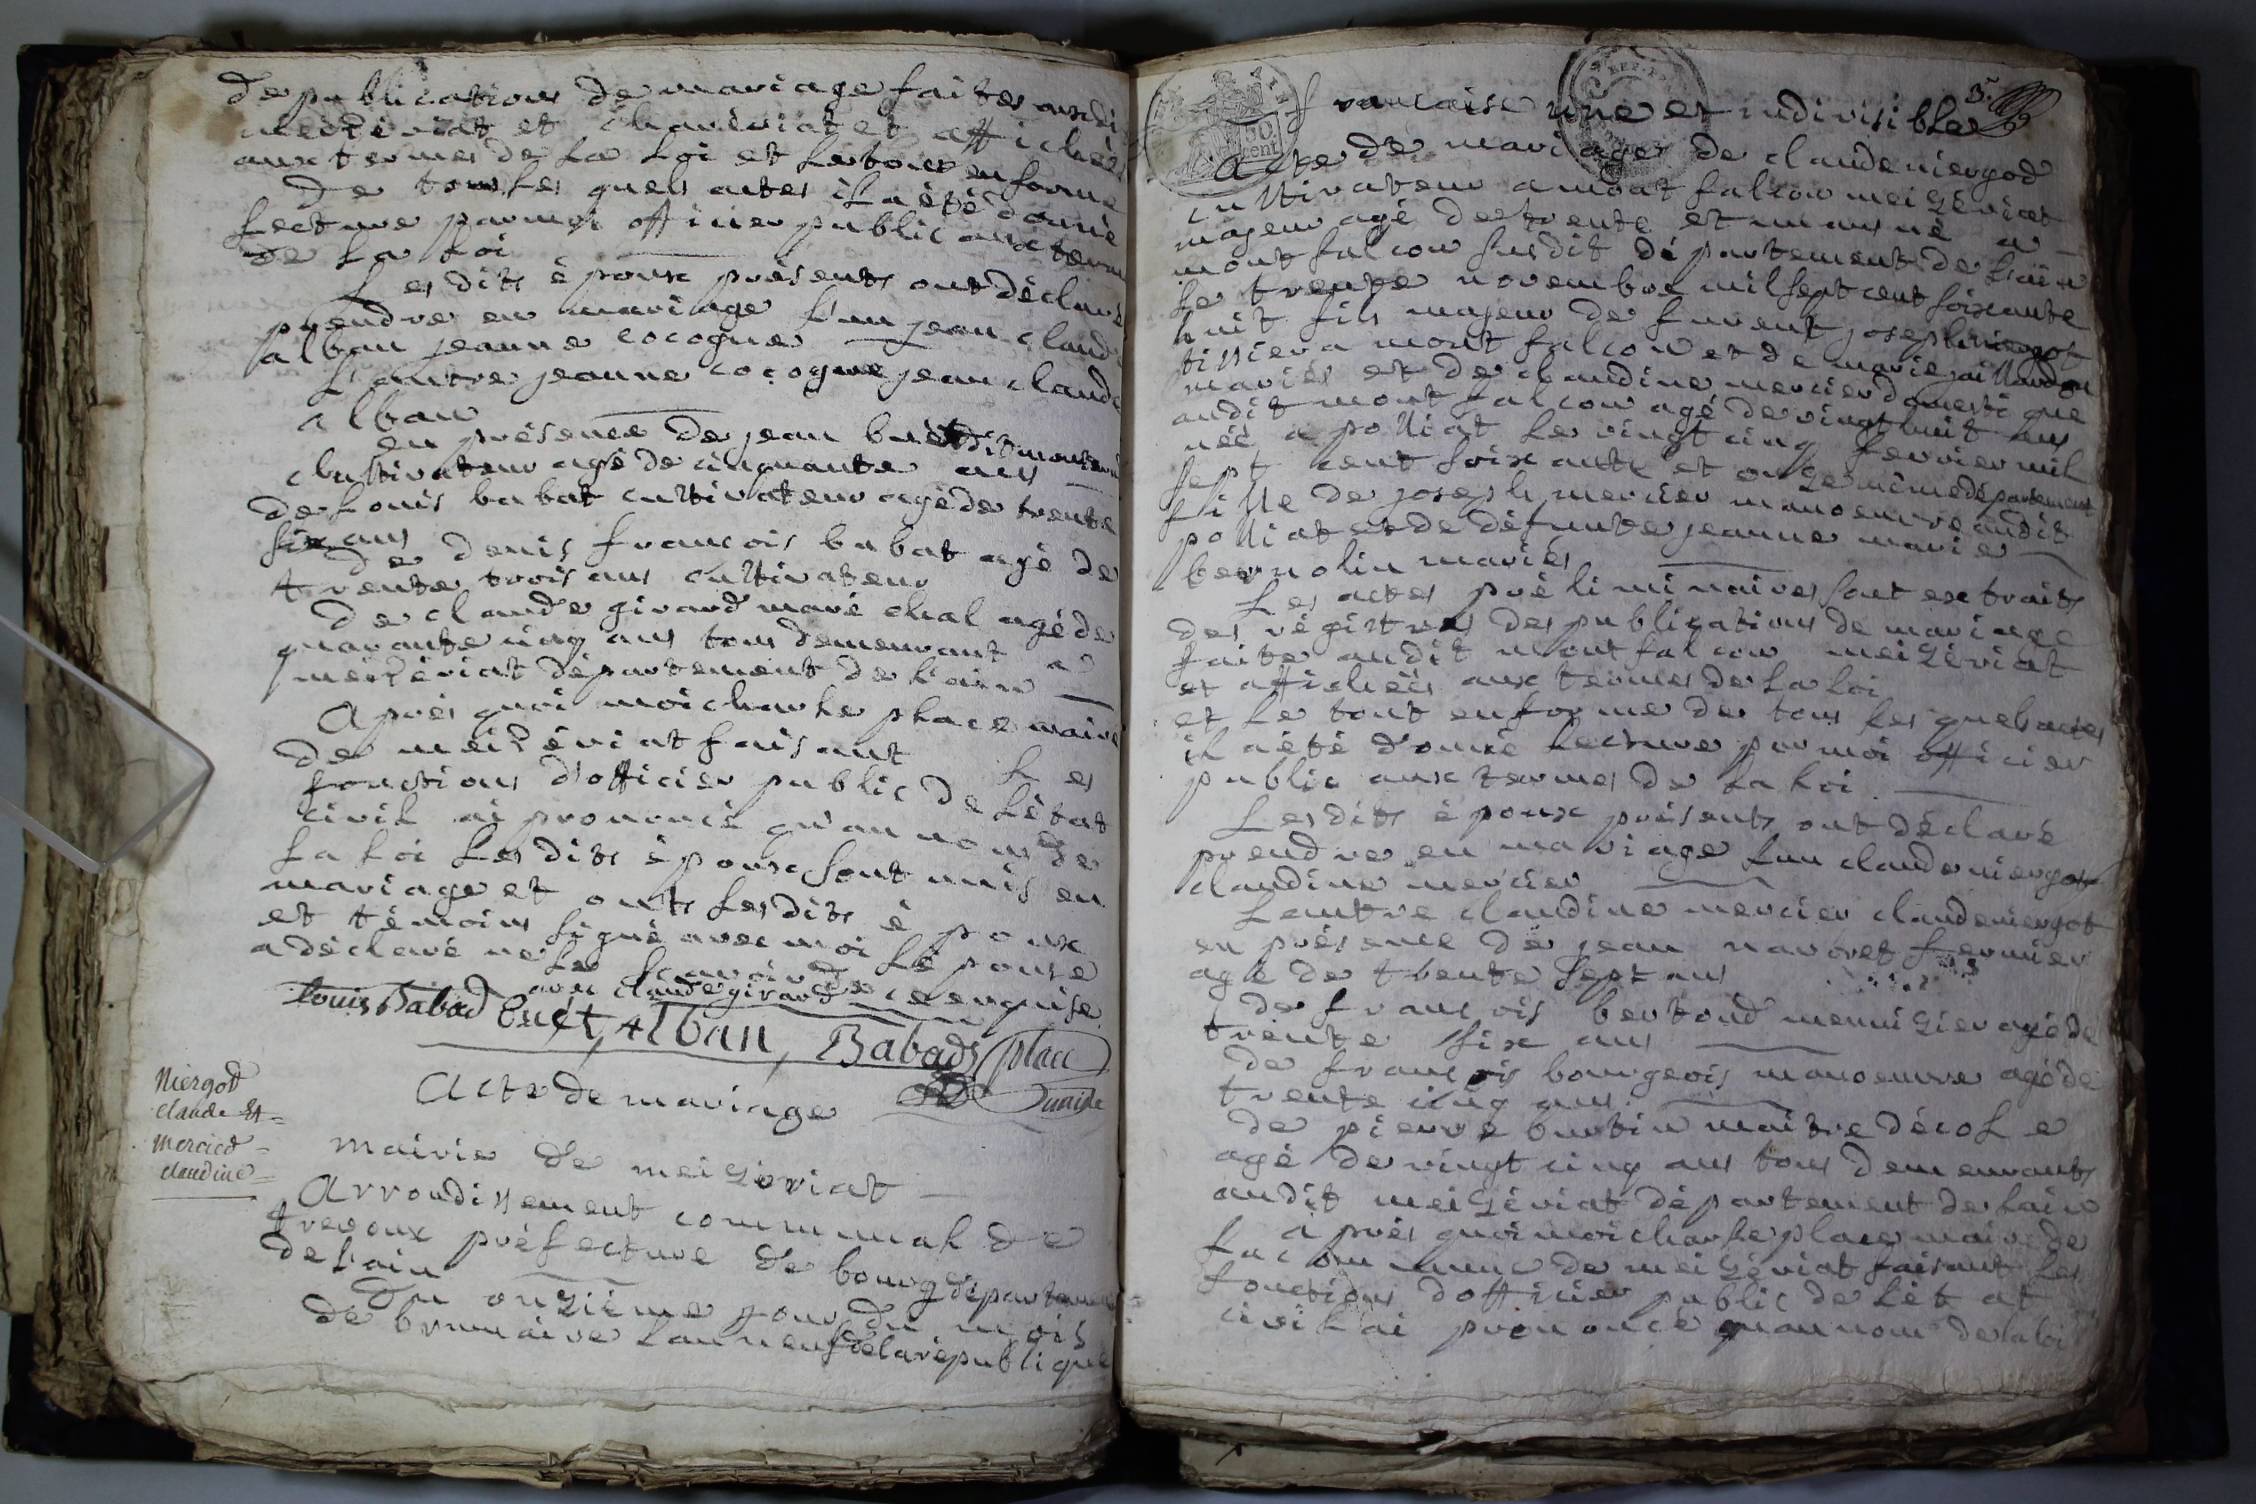 de publications de mariage faites audit
meizériat et chavériat et affichée
aux termes de la Loi et le tout en forme
De tous les quels actes il a été donné
Lecture par moi officier public aux termes
de la Loi
Lesdits époux présents ont déclaré
prendre en mariage L'un jean claude
alban jeanne cocogne
L'autre jeanne cocogne jean claude
alban
en présence de jean buet dit
cultivateur agé de cinquante ans
de Louis babat cultivateur agé de trente
six ans
de denis francois babat agé de
trente trois ans cultivateur
de claude girard maréchal agé de
quarante cinq ans tous demeurant a
meizériat département de L'ain
Après quoi moi charle place maire
de meizériat faisant Les
fonctions d'officier public de L'état
civil ai prononcé qu'au nom de
La Loi Lesdits époux sont unis en
mariage et onts Lesdits époux
et témoins signé avec moi L'épouse
a déclaré ne Le scavoir de ce enquise
avec claude girard
Louis Babad buet, alban, Babad, place
maire
Acte de mariage
Niergod
claude Et
Mercied
claudine
mairie de meizériat
Arrondissement communal de
trevoux préfecture de bourg département
de L'ain
du onzième jour du mois
de brumaire L'an neuf de la république
3.
francaise une et indivisible
Acte de mariage de claude niergod
cultivateur a montfalcon meizériat
majeur agé de trente et un ans né a
montfalcon susdit département de L'ain
Le trente novembre mil sept cent soixante
huit fils majeur de furent joseph niergot
tissier a montfalcon et de marie
mariés et de claudine mercier domestique
audit montfalcon agé de vingt huit ans
née a polliat Le vingt cinq fevrier mil
sept cent soixante et onze même département
fille de joseph mercier manoeuvre audit
polliat et de défunte jeanne marie
bernolin mariés
Les actes préliminaires sont extraits
des régistres des publications de mariage
faite audit montfalcon meizériat
et affichées aux termes de La Loi
et Le tout en forme de tous Les quels actes
il a été donné Lecture par moi officier
public aux termes de La Loi
Lesdits époux présents ont déclaré
prendre en mariage L'un claude niergot
claudine mercier
L'autre claudine mercier claude niergot
en présence de jean narboret fermier
agé de trente sept ans
de francois bertoud menuizier agé de
trente six ans
de francois bourgeois manoeuvre agé de
trente cinq ans
de pierre burtin maître d'école
agé de vingt cinq ans tous demeurants
audit meizériat département de L'ain
après quoi moi charle place maire de
La commune de meizériat faisant Les
fonctions d'officier public de L'état
civil ai prononcé qu'au nom de la loi